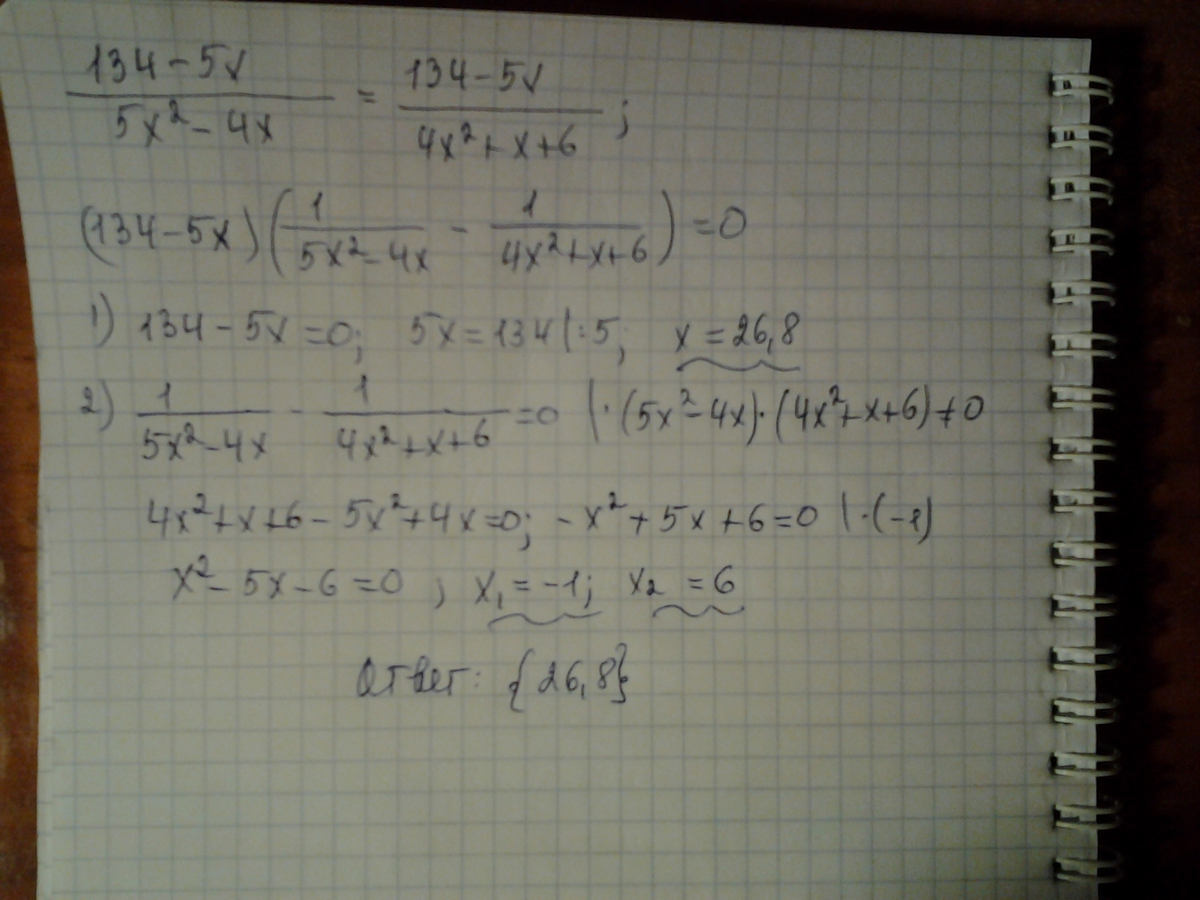 (134-5x)/(5x²-4x) = (134-5x)/(4x²+x+6) ;
(134-5x)(1/(5x²-4x) - 1/(4x²+x+6)) = 0
1) 134-5x=0; 5x=134 |:5; x=26,8
2) 1/(5x²-4x) - 1/(4x²+x+6) =0 |·(5x²-4x)·(4x²+x+6)≠0
4x²+x+6-5x²+4x=0; -x²+5x+6=0 |·(-1)
x²-5x-6=0 ; x₁=-1; x₂=6
Ответ: {26,8}